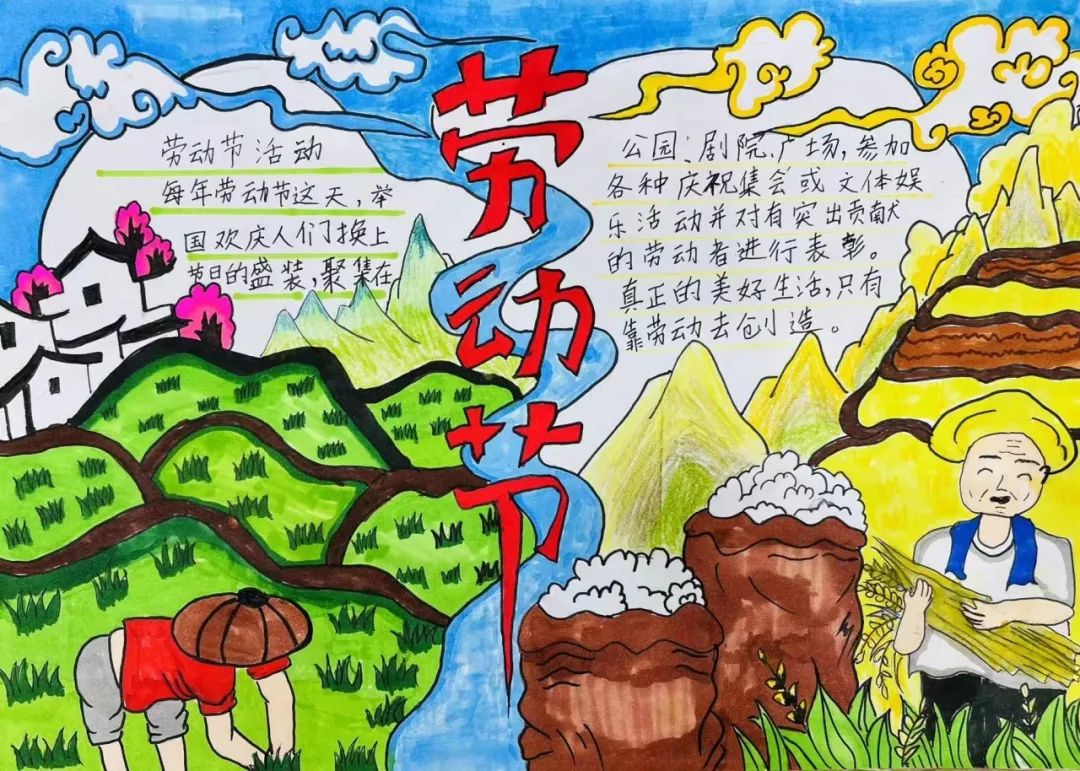 劳动节
劳动节活动
每年劳动节这天，举
国欢庆人们换上
节日的盛装，聚集在
公园、剧院、广场，参加
各种庆祝集会或文体娱
乐活动并对有突出贡献
的劳动者进行表彰。
真正的美好生活，只有
靠劳动去创造。